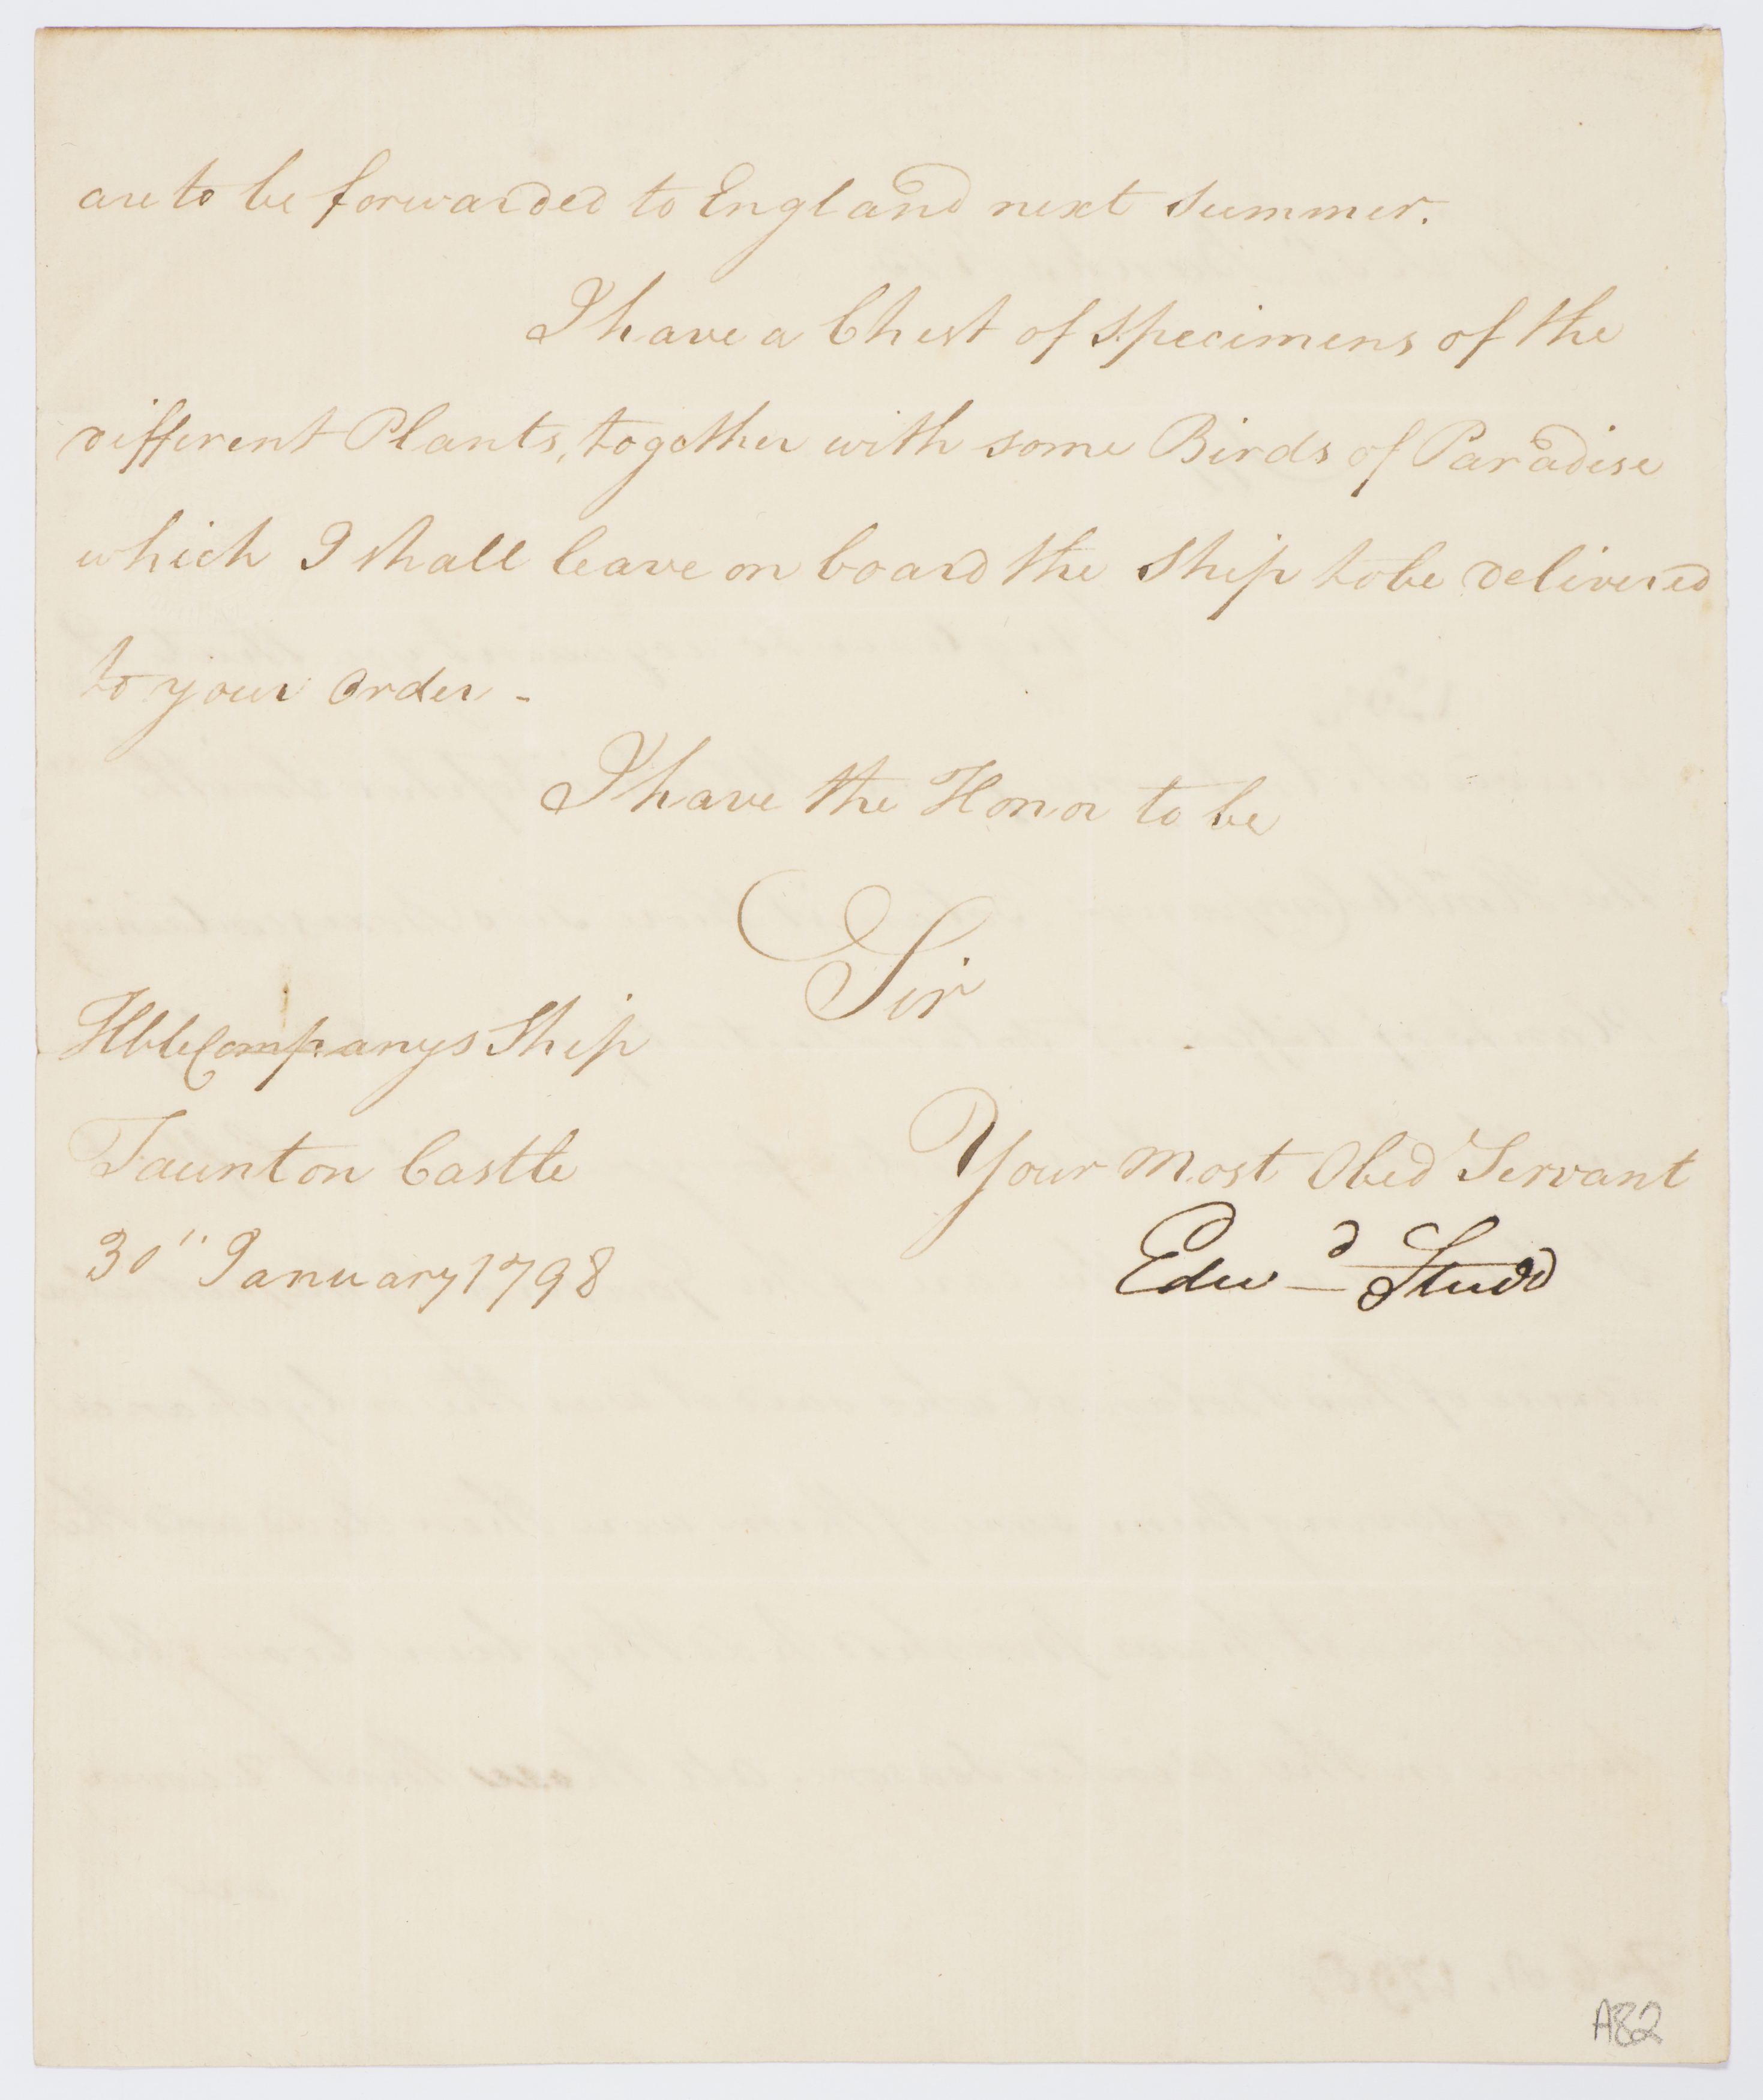 are to be forwarded to England next summer.
I have a Chest of specimens of the
different Plants, together with some Birds of Paradise
which I shall leave on board the Ship to be delivered
to your order -
I have the Honor to be
Sir
Hble Companys Ship
Taunton Castle
30" January 1798
Your most Obed Servant
Edwd Studd
A82